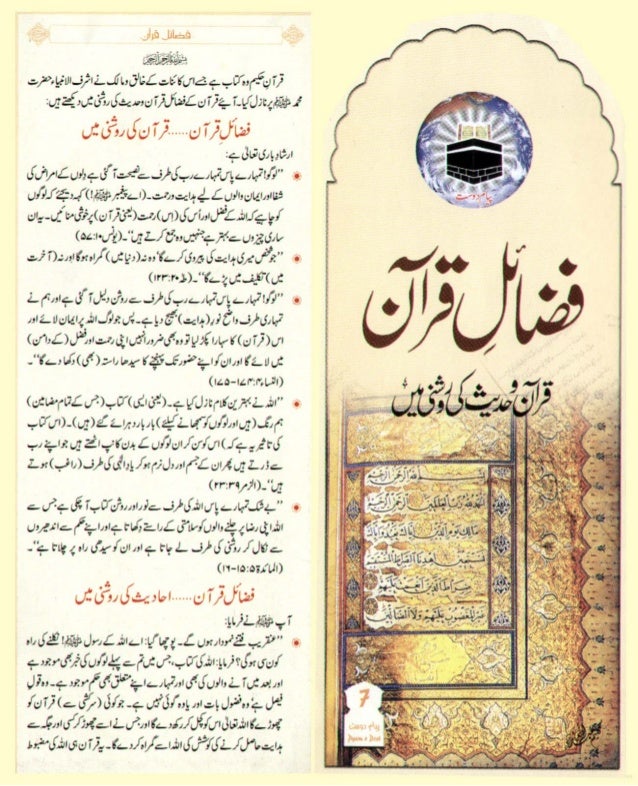 فضائل قرآن
قرآن حکیم وہ کتاب ہے جسے اس کائنات کے خالق و مالک نے اشرف الانبیاء حضرت
محمد ﷺ پر نازل کیا۔ آیئے قرآن کے فضائل قرآن وحدیث کی روشنی میں دیکھتے ہیں:
فضائلِ قرآن......قرآن کی روشنی میں
ارشادِ باری تعالیٰ ہے:
"لوگو! تمہارے پاس تمہارے رب کی طرف سے نصیحت آ گئی ہے دلوں کے امراض کی
شفا اور ایمان والوں کے لیے ہدایت ورحمت۔ (اے پیغمبر ﷺ!) کہہ دیجئے کہ لوگوں
کو چاہیے کہ اللہ کے فضل اور اُس کی (اِس) رحمت (یعنی قرآن) پر خوشی منائیں۔ یہ ان
ساری چیزوں سے بہتر ہے جنہیں وہ جمع کرتے ہیں"۔ (یونس ۱۰:۵۷)
"جو شخص میری ہدایت کی پیروی کرے گا' وہ نہ (دنیا میں) گمراہ ہوگا اور نہ (آخرت
میں) تکلیف میں پڑے گا"۔ (طہ ۲۰:۱۲۳)
"لوگو! تمہارے پاس تمہارے رب کی طرف سے روشن دلیل آ گئی ہے اور ہم نے
تمہاری طرف واضح نور (ہدایت) بھیج دیا ہے۔ پس جو لوگ اللہ پر ایمان لائے اور
اس (قرآن) کا سہارا پکڑ لیا' تو وہ بھی ضرور اُنہیں اپنی رحمت اور فضل (کے دامن)
میں لائے گا اور ان کو اپنے حضور تک پہنچنے کا سیدھا راستہ (بھی) دکھا دے گا"۔
(النساء ۴:۱۷۴-۱۷۵)
"اللہ نے بہترین کلام نازل کیا ہے۔ (یعنی ایسی) کتاب (جس کے تمام مضامین)
ہم رنگ (ہیں اور لوگوں کو سمجھانے کیلئے) بار بار دہرائے گئے (ہیں)۔ (اس کتاب
کی تاثیر یہ ہے کہ) اس کو سن کر ان لوگوں کے بدن کانپ اٹھتے ہیں جو اپنے رب
سے ڈرتے ہیں پھر ان کے جسم اور دل نرم ہو کر یادِ الٰہی کی طرف (راغب) ہوتے
ہیں"۔ (الزمر ۳۹:۲۳)
"بے شک تمہارے پاس اللہ کی طرف سے نور اور روشن کتاب آ چکی ہے جس سے
اللہ اپنی رضا پر چلنے والوں کو سلامتی کے راستے دِکھاتا ہے اور اپنے حکم سے اندھیروں
سے نکال کر روشنی کی طرف لے جاتا ہے اور ان کو سیدھی راہ پر چلاتا ہے"۔
(المائدۃ ۵:۱۵-۱۶)
فضائل قرآن......احادیث کی روشنی میں
آپ ﷺ نے فرمایا:
"عنقریب فتنے نمودار ہوں گے۔ پوچھا گیا: اے اللہ کے رسول ﷺ! نکلنے کی راہ
کون سی ہوگی؟ فرمایا: اللہ کی کتاب، جس میں تم سے پہلے لوگوں کی خبر بھی موجود ہے
اور بعد میں آنے والوں کی بھی اور تمہارے اپنے متعلق بھی حکم موجود ہے۔ وہ قولِ
فیصل ہے' وہ فضول بات اور یاوہ گوئی نہیں ہے۔ جو کوئی (سرکشی سے) قرآن کو
چھوڑے گا اللہ تعالیٰ اس کو کچل کر رکھ دے گا اور جس نے اسے چھوڑ کر کسی اور جگہ سے
ہدایت حاصل کرنے کی کوشش کی اللہ اسے گمراہ کر دے گا۔ یہ قرآن ہی اللہ کی مضبوط
پیام دوست
فضائلِ قرآن
قرآن وحدیث کی روشنی میں
بسم الله الرحمن الرحيم
الحمد لله رب العالمين الرحمن الرحيم
مالك يوم الدين اياك نعبد واياك
نستعين اهدنا الصراط المستقيم
صراط الذين انعمت عليهم
غير المغضوب عليهم ولا الضالين
7
پیام دوست
Payam e Dost